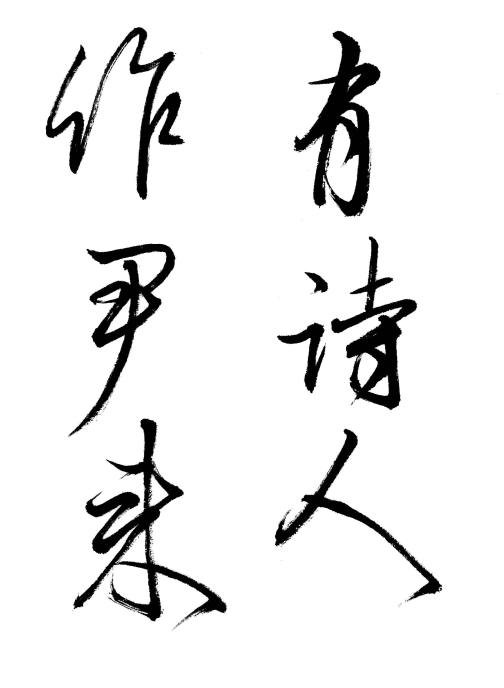 有诗人
作尹来